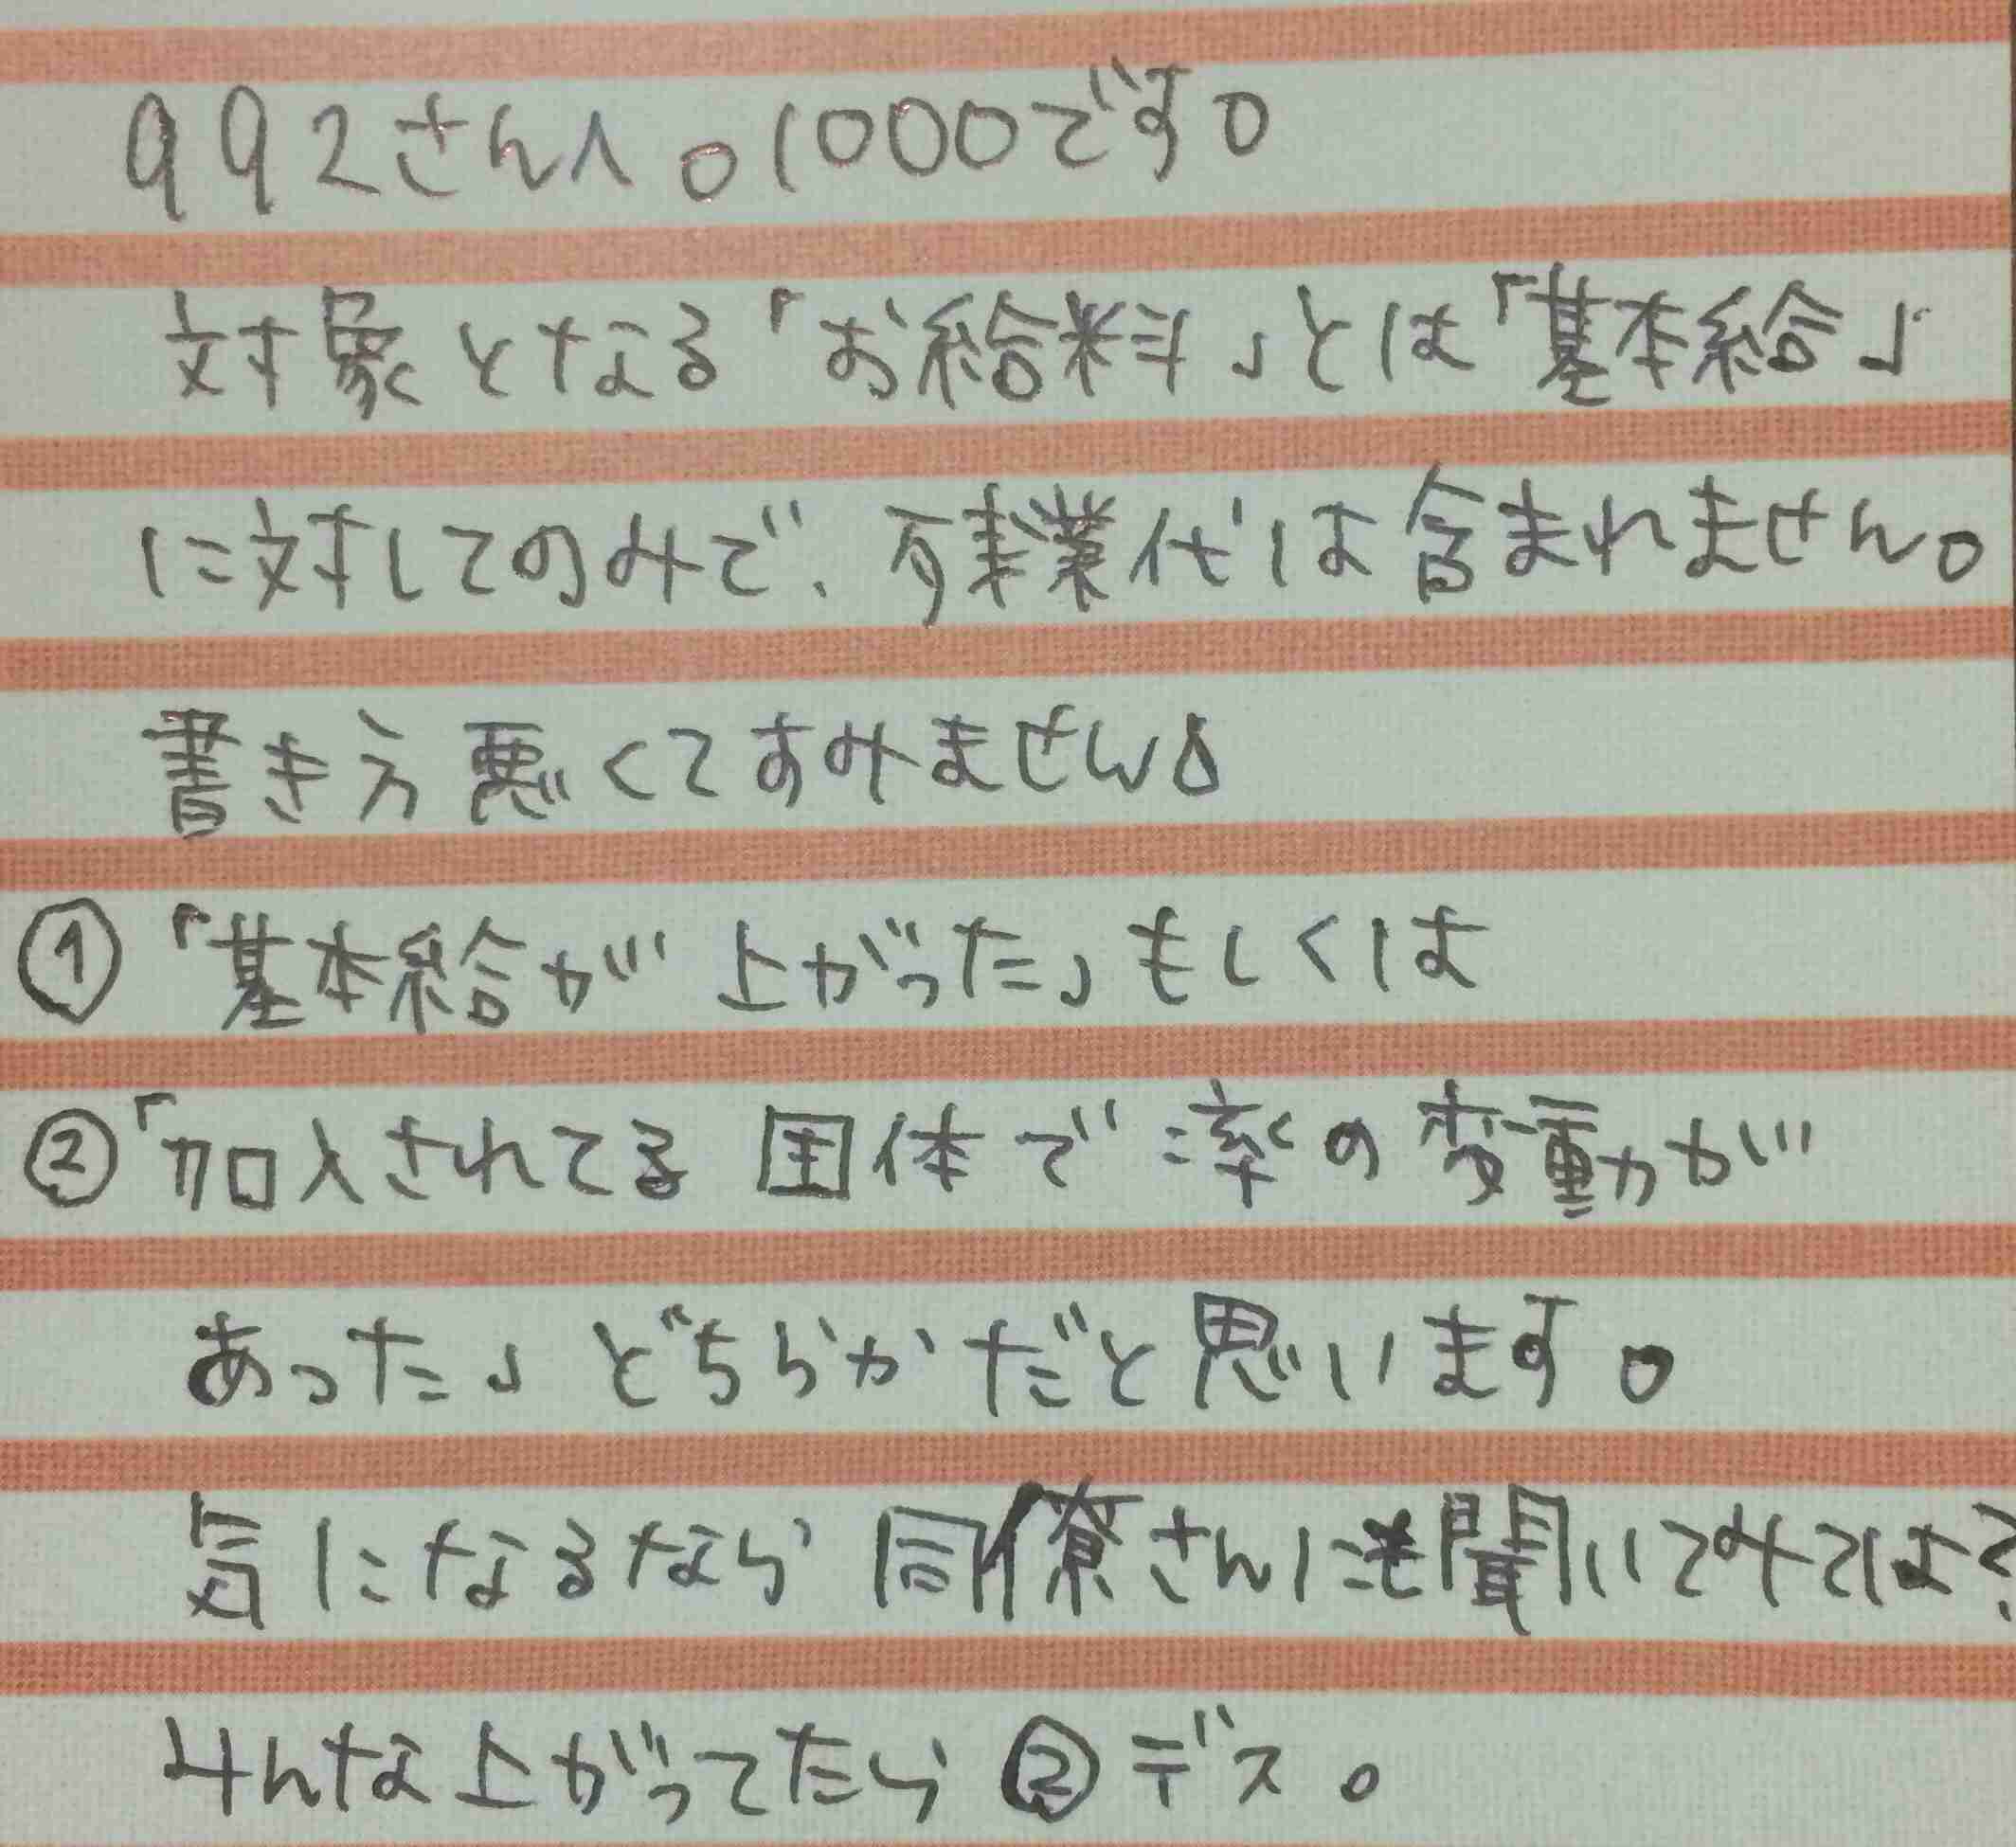 992さんへ。1000です。
対象となる「お給料」とは「基本給」
に対してのみで、残業代は含まれません。
書き方悪くてすみません。
① 「基本給が上がった」もしくは
② 「加入されてる団体で率の変動が
あった」どちらかだと思います。
気になるなら同僚さんにも聞いてみては?
みんな上がってたら②デス。